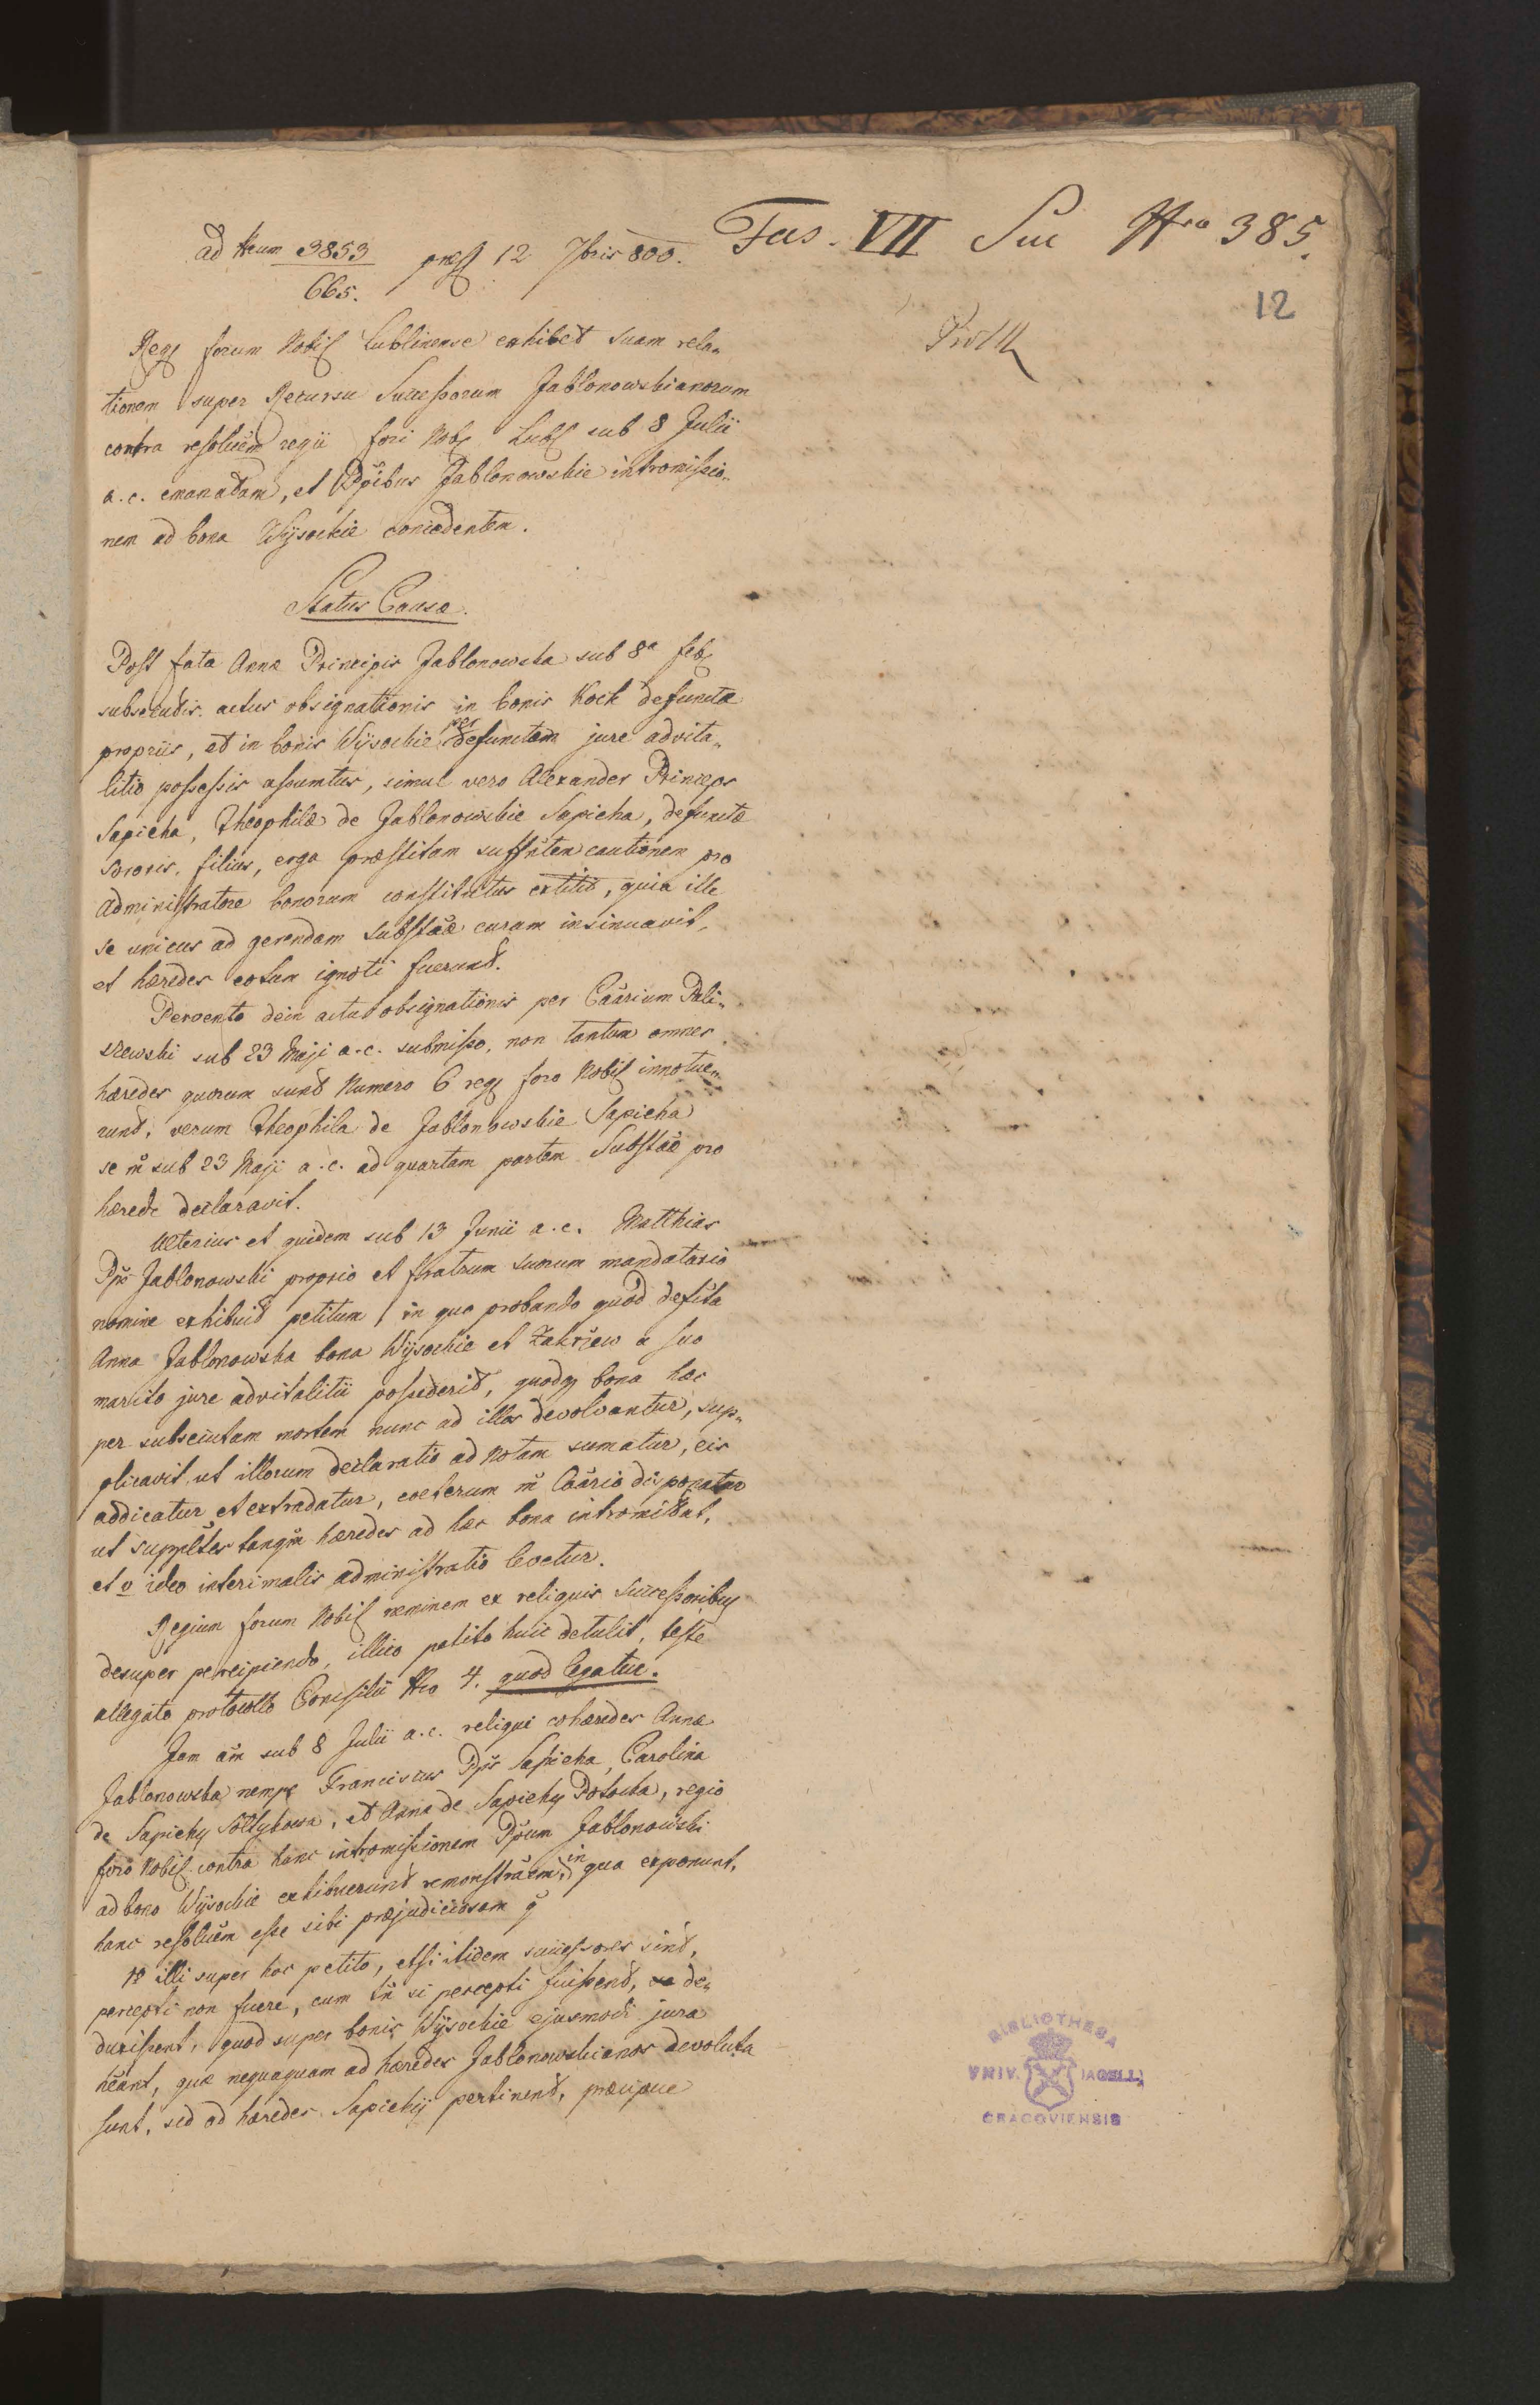 Fas. VII Suc Nro 385.
ad Nrum 3853
665.
præs 12 7bris 800.
12
Reg forum Nobil Lublinense exhibet suam rela„
tionem super Recursu Successorum Jablonowskianorum
contra resoluem regii fori Nob Lubl sub 8 Julii
a.c. emanatam, et Ppibus Jablonowskie intromissio„
nem ad bona Wÿsockie concedentem.
Status Causæ.
Post fata Annæ Principis Jablonowska sub 8a feb
subsecutis. actus obsignationis in bonis Kock defunctæ
propriis, et in bonis Wÿsockie per defunctam jure advita„
litio possessis assumtus, simul vero Alexander Princeps
Sapieha, Theophilæ de Jablonowskie Sapieha, defunctæ
sororis, filius, erga præstitam suffntem cautionem pro
administratore bonorum constitutus extitit, quia ille
se unicus ad gerendam substaæ curam insinuavit,
et hæredes eotum ignoti fuerunt.
Pervento dein actu obsignationis per Caarium Pali„
szewski sub 23 Maji a.c. submisso, non tantum omnes
hæredes quorum sunt Numero 6 reg foro Nobil innotue„
runt, verum Theophila de Jablonowskie Sapieha
se m̃ sub 23 Maji a.c. ad quartam partem Substaæ pro
hærede declaravit.
Ulterius et quidem sub 13 Junii a.c. Matthias
Pps Jablonowski proprio et fratrum suorum mandatario
nomine exhibuit petitum, in quo probando quod defcta
Anna Jablonowska bona Wÿsockie et Zakrzew a suo
marito jure advitalitii possederit, quodq bona hæc
per subsecutam mortem nunc ad illos devolvantur, sup„
plicavit ut illorum declaratio ad notam sumatur, eis
addicatur et extradatur, coeterum m̃ Caario disponatur
ut supplctes tanqm hæredes ad hæc bona intromittat,
et v ideo interimalis administratio levetur.
Regium forum Nobil neminem ex reliquis successoribus
desuper percipiendo, illico petito huic detulit, teste
allegato protocollo Consilii Nro 4. quod legatur.
Jam am̃ sub 8 Julii a.c. reliqui cohæredes Annæ
Jablonowska nempe Franciscus Pps Sapieha, Carolina
de Sapiehÿ Soltykowa, et Anna de Sapiehÿ Potocka, regio
foro Nobil contra hanc intromissionem Ppum Jablonowski
ad bona Wÿsockie exhibuerunt remonstraem, in qua exponunt,
hanc resoluem esse sibi præjudiciosam q̃
1º illi super hoc petito, etsi itidem successores sint,
percepti non fuere, cum tn̄ si percepti fuissent, de„
duxissent, quod super bonis Wÿsockie ejusmodi jura
hēant, quæ nequaquam ad hæredes Jablonowskianos devoluta
sunt, sed ad hæredes Sapiehÿ pertinent, præcipue
BIBLIOTHECA
VNIV. IAGELL.
CRACOVIENSIS